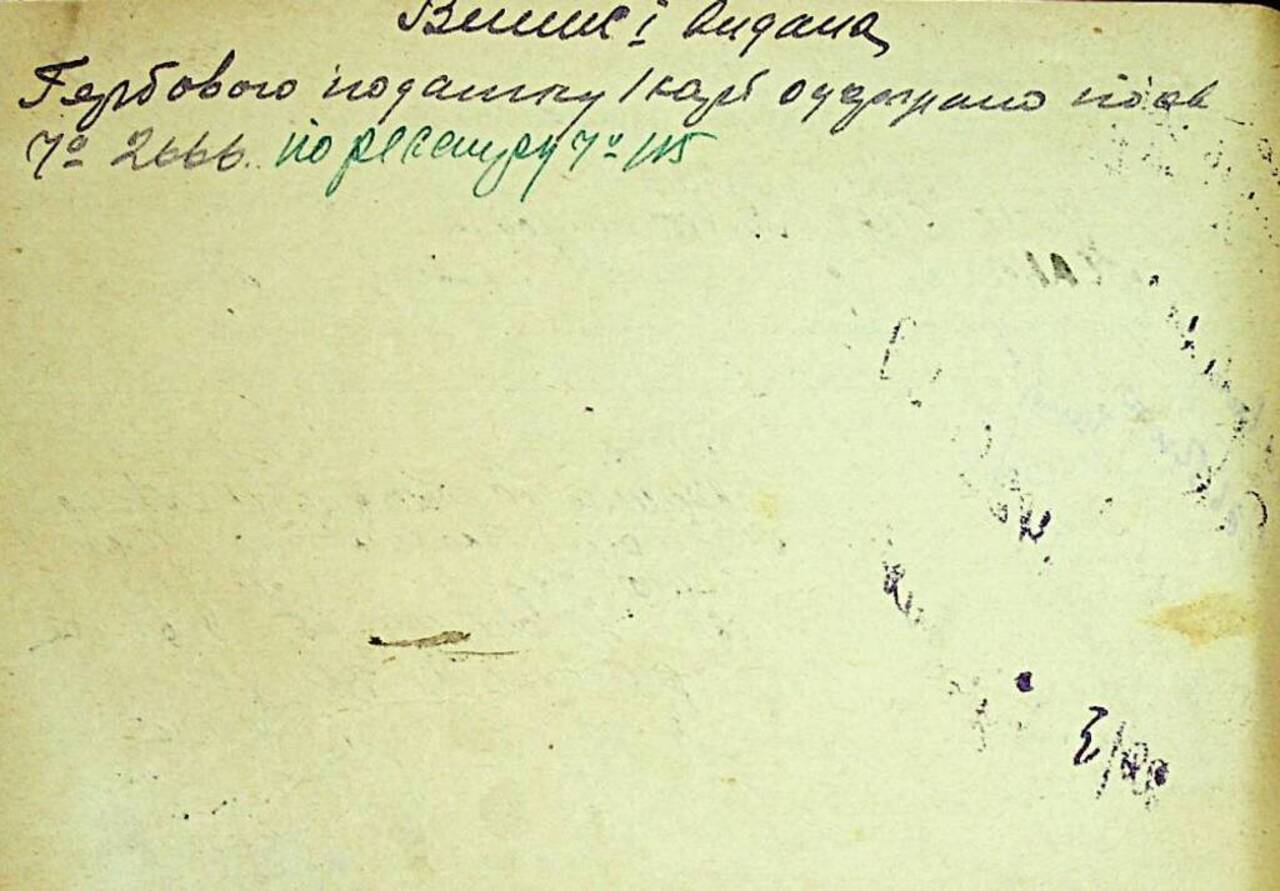 Випис і видана
Гербового податку 1 карб одержано під
№ 2666. по реєстру № 115